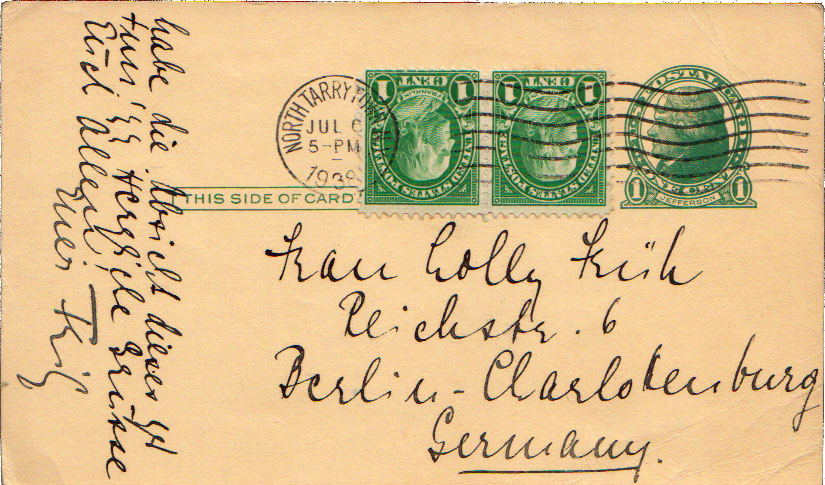 NORTH TARRYTOWN
JUL 6
5-PM
1938
1 CENT 1
FRANKLIN
UNITED STATES POSTAGE
1 CENT 1
FRANKLIN
UNITED STATES POSTAGE
U.S. POSTAL CARD
ONE CENT
1 JEFFERSON 1
THIS SIDE OF CARD
Frau Lolly Früh
Reichstr. 6
Berlin-Charlottenburg
Germany.
habe die Absicht dieses zu
tun. herzliche Grüsse
Euch Allen!
Euer